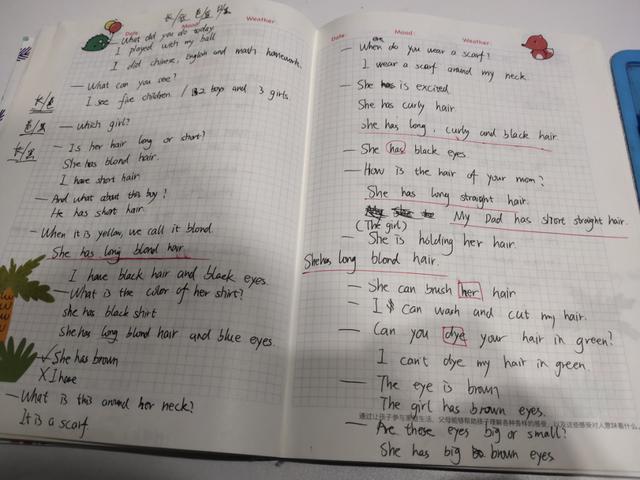 长/短 毛/笔 白/黑
Date: Mood: Weather:
— What did you do today
I played with my ball
I did chinese, English and math homework.
— What can you see?
I see five children / 2 boys and 3 girls.
— Which girl?
— Is her hair long or short?
She has blond hair.
I have short hair
— And what about this boy?
He has short hair.
— When it is yellow, we call it blond.
She has long blond hair.
I have black hair and black eyes.
— What is the color of her shirt?
she has black shirt
she has long blond hair and blue eyes.
✓ She has brown
X I have
— What is this around her neck?
It is a scarf.
Date: Mood: Weather:
— When do you wear a scarf?
I wear a scarf around my neck.
— She is excited.
She has curly hair.
she has long, curly and black hair.
— She has black eyes.
— How is the hair of your mom?
She has long straight hair.
My Dad has short straight hair.
(The girl)
— She is holding her hair.
She has long blond hair.
— She can brush her hair
— I can wash and cut my hair.
— Can you dye your hair in green?
I can't dye my hair in green.
— The eye is brown
The girl has brown eyes.
— Are these eyes big or small?
She has big brown eyes